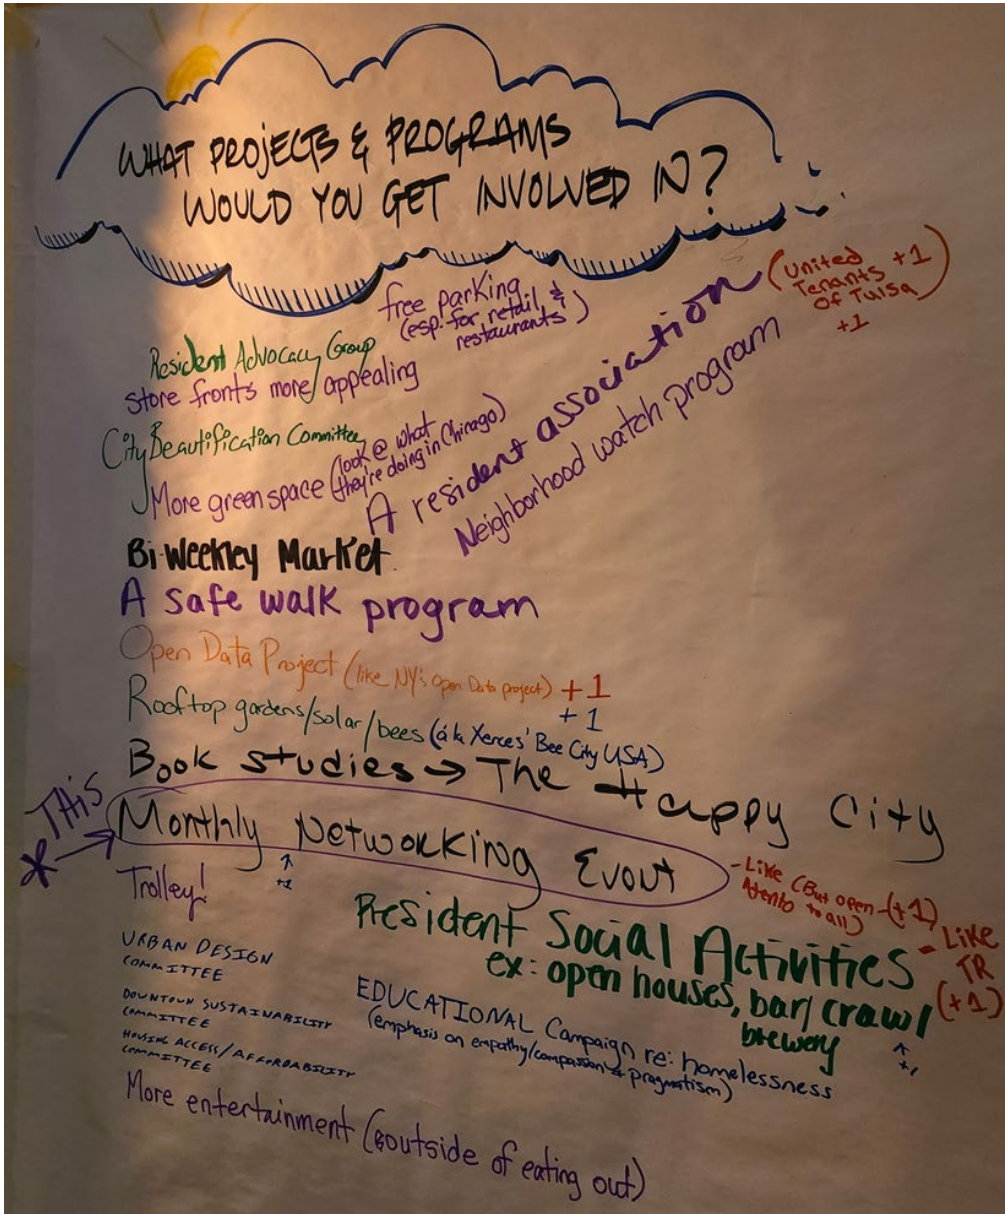 WHAT PROJECTS & PROGRAMS
WOULD YOU GET INVOLVED IN?
free parking
(esp. for retail, &
restaurants)
Resident Advocacy Group
store fronts more appealing
City Beautification Committee
More green space (look @ what
they're doing in Chicago)
A resident association
(United +1
Tenants
of Tulsa)
+1
Neighborhood watch program
Bi-Weekley Market
A safe walk program
Open Data Project (like NY's Open Data project) +1
+1
Rooftop gardens/solar/bees (á la Xerces' Bee City USA)
Book studies → The Happy City
* THIS →
Monthly Networking Evout
+1
- Like (But open -(+1)
to all)
Trolley!
Resident Social Activities
ex: open houses, bar/crawl
brewery
+1
- LIKE
TR
(+1)
URBAN DESIGN
COMMITTEE
DOWNTOWN SUSTAINABILITY
COMMITTEE
HOUSING ACCESS/AFFORDABILITY
COMMITTEE
EDUCATIONAL Campaign re: homelessness
(emphasis on empathy/compassion & pragmatism)
More entertainment (outside of eating out)